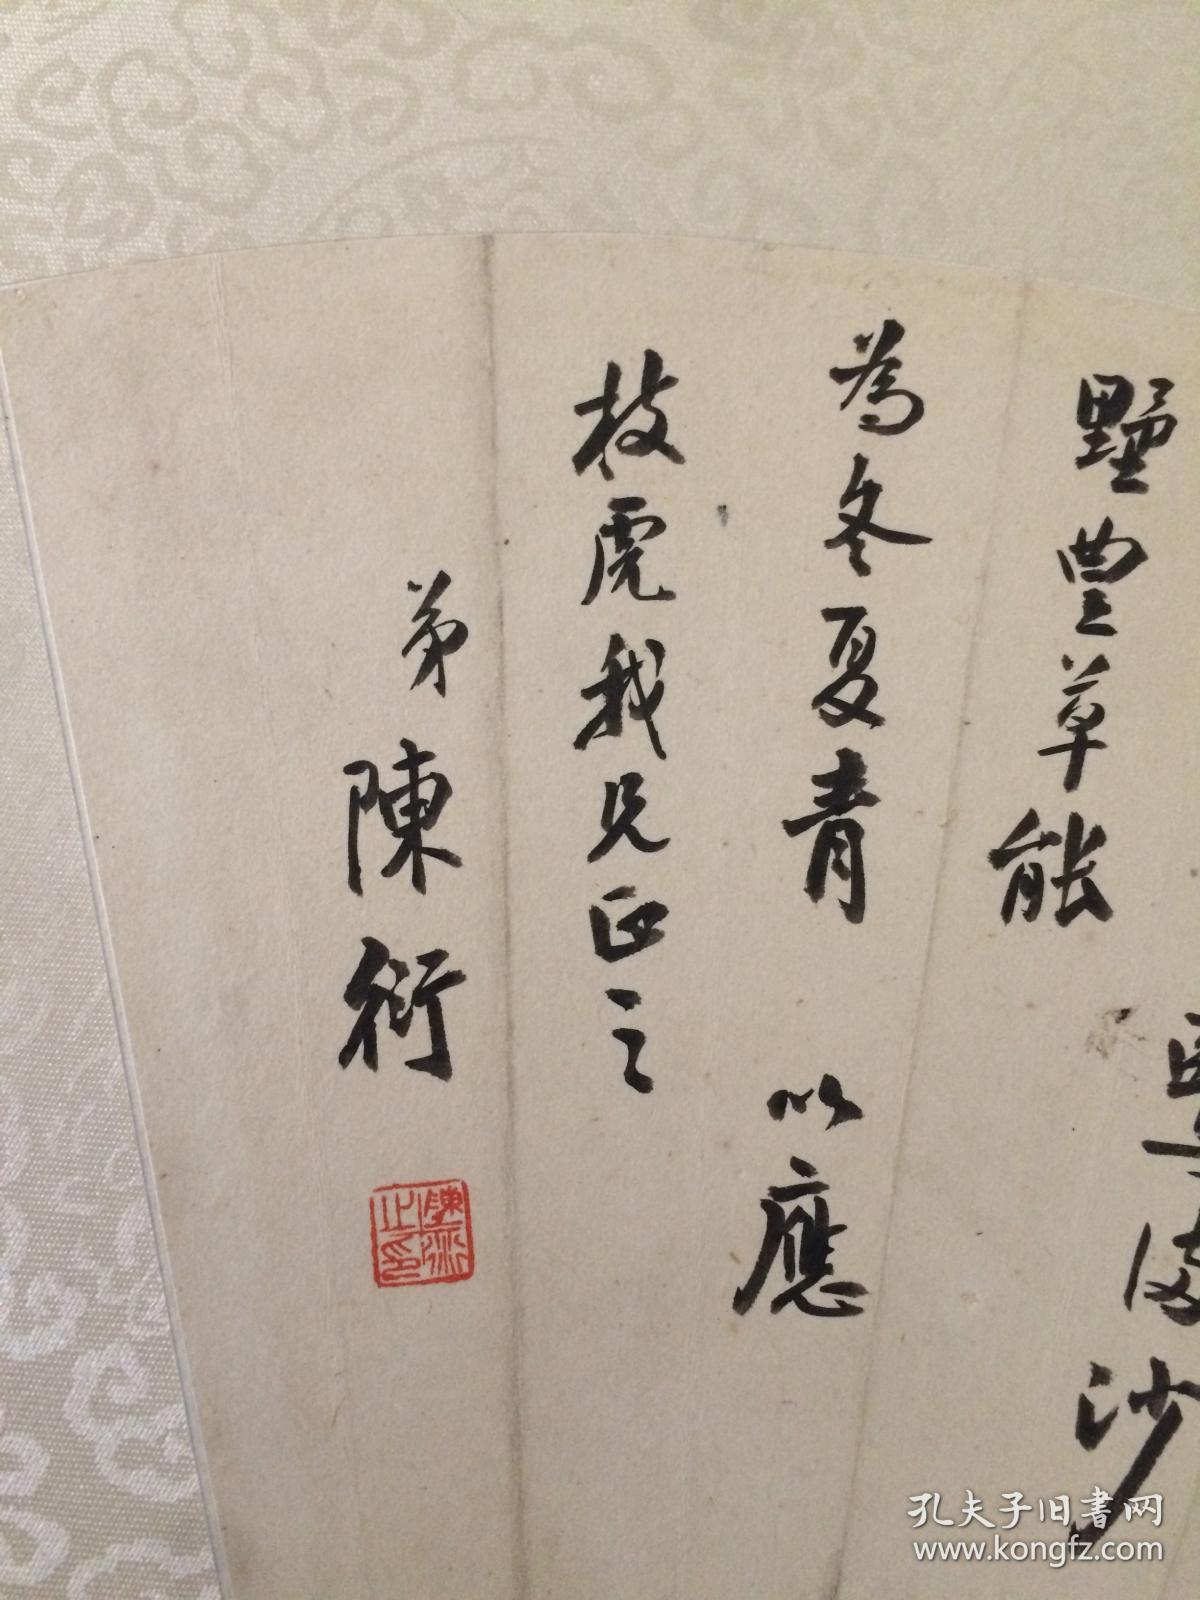 沙
野豊草能
為冬夏青 以應
枝虎我兄正之
弟陳衍
陳衍之印
孔夫子旧书网
www.kongfz.com